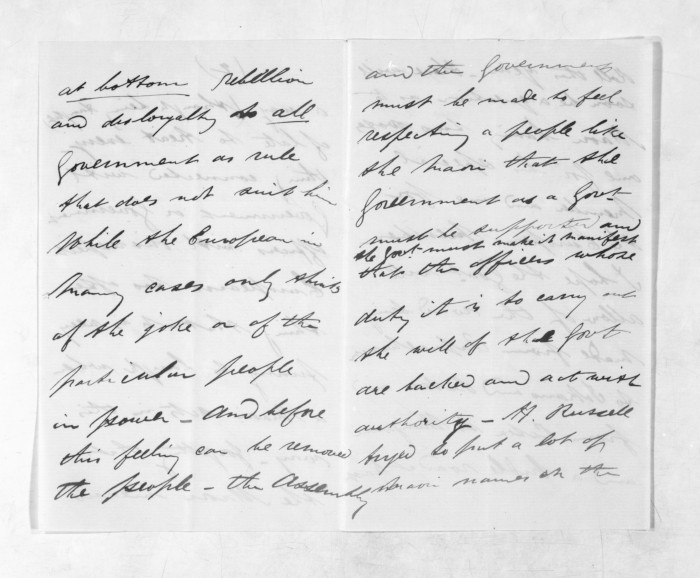 at bottom rebellion
and disloyalty to all
Government as rule
that does not suit him
While the European in
many cases only thinks
of the joke or of the
particular people
in power – and before
this feeling can be removed
the people – the Assembly
and the Government
must be made to feel
respecting a people like
the Maori that the
Government as a Govt
must be supported and
the Govt must make it manifest
that the officers whose
duty it is to carry out
the will of the Govt
are backed and act with
authority – H. Russell
tryed to put a lot of
Maori names on the